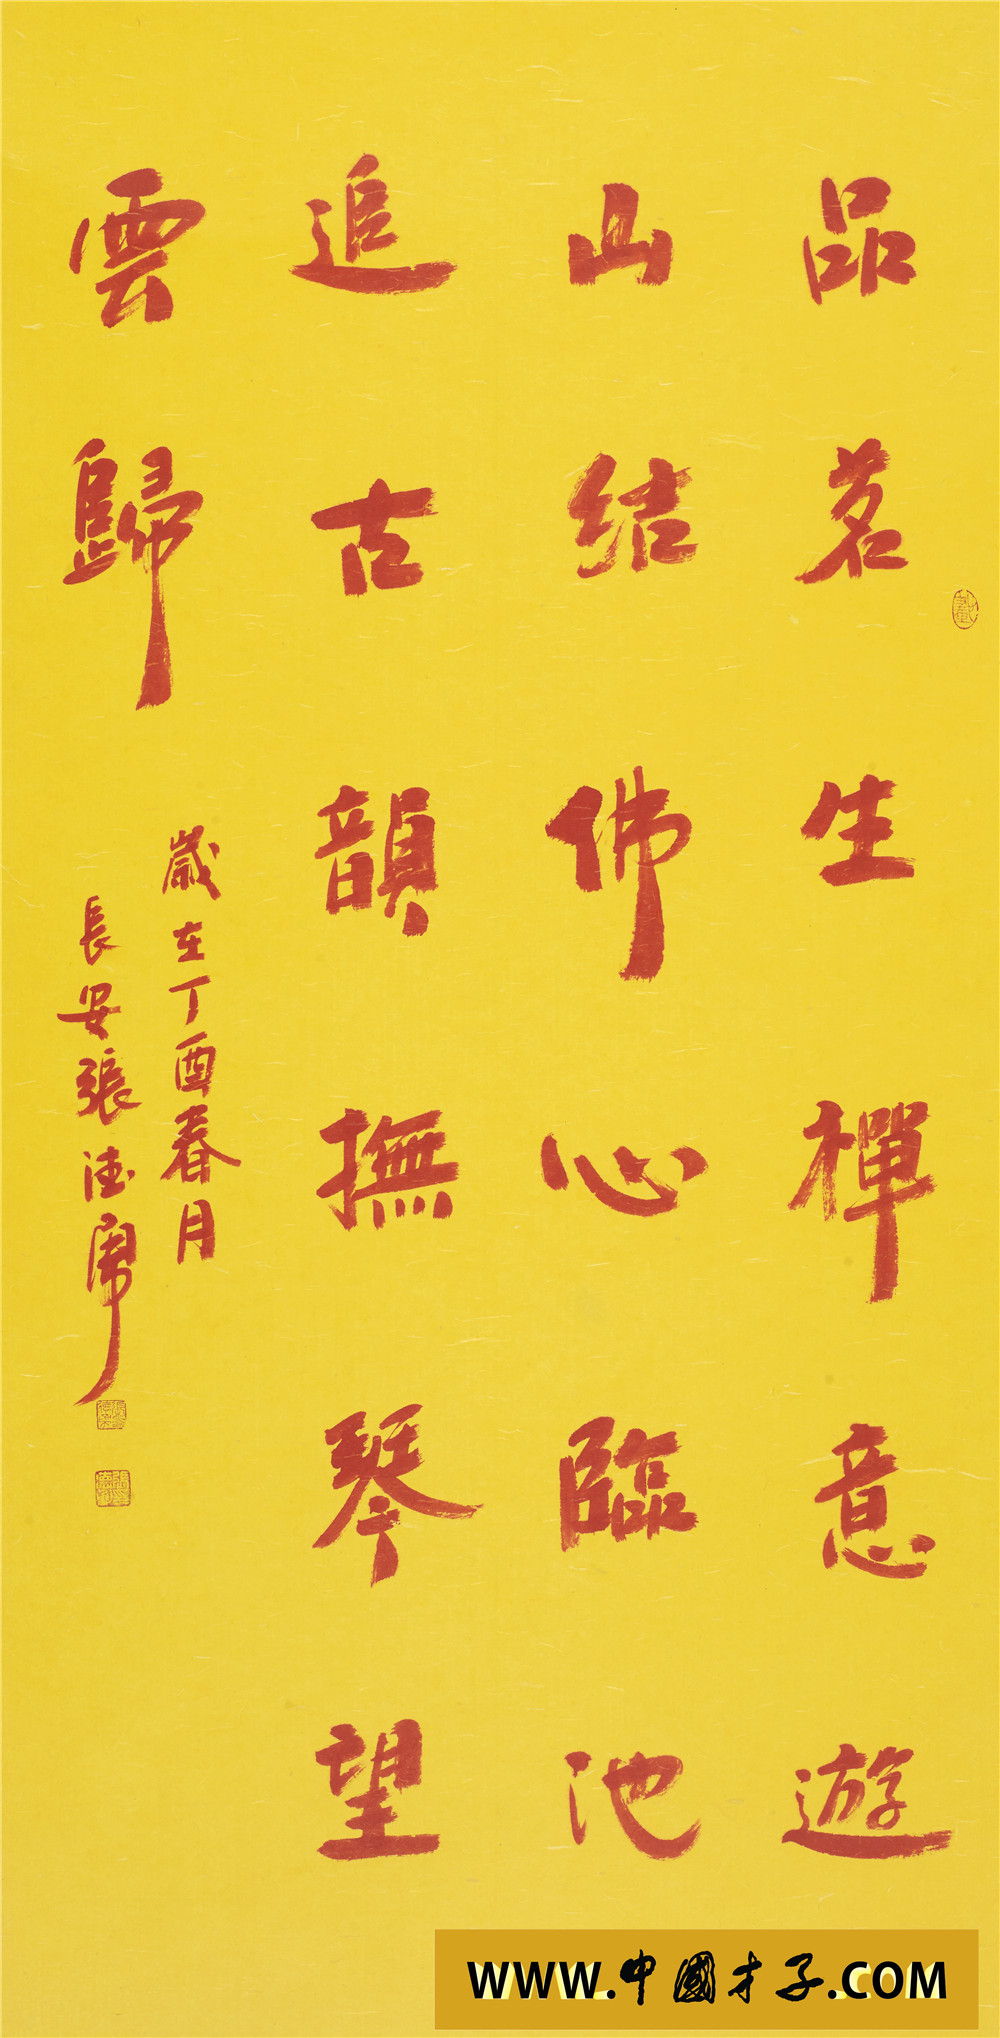 品茗生禪意遊
山结佛心臨池
追古韻撫琴望
雲歸
歲在丁酉春月
長安張德
WWW.中國才子.COM